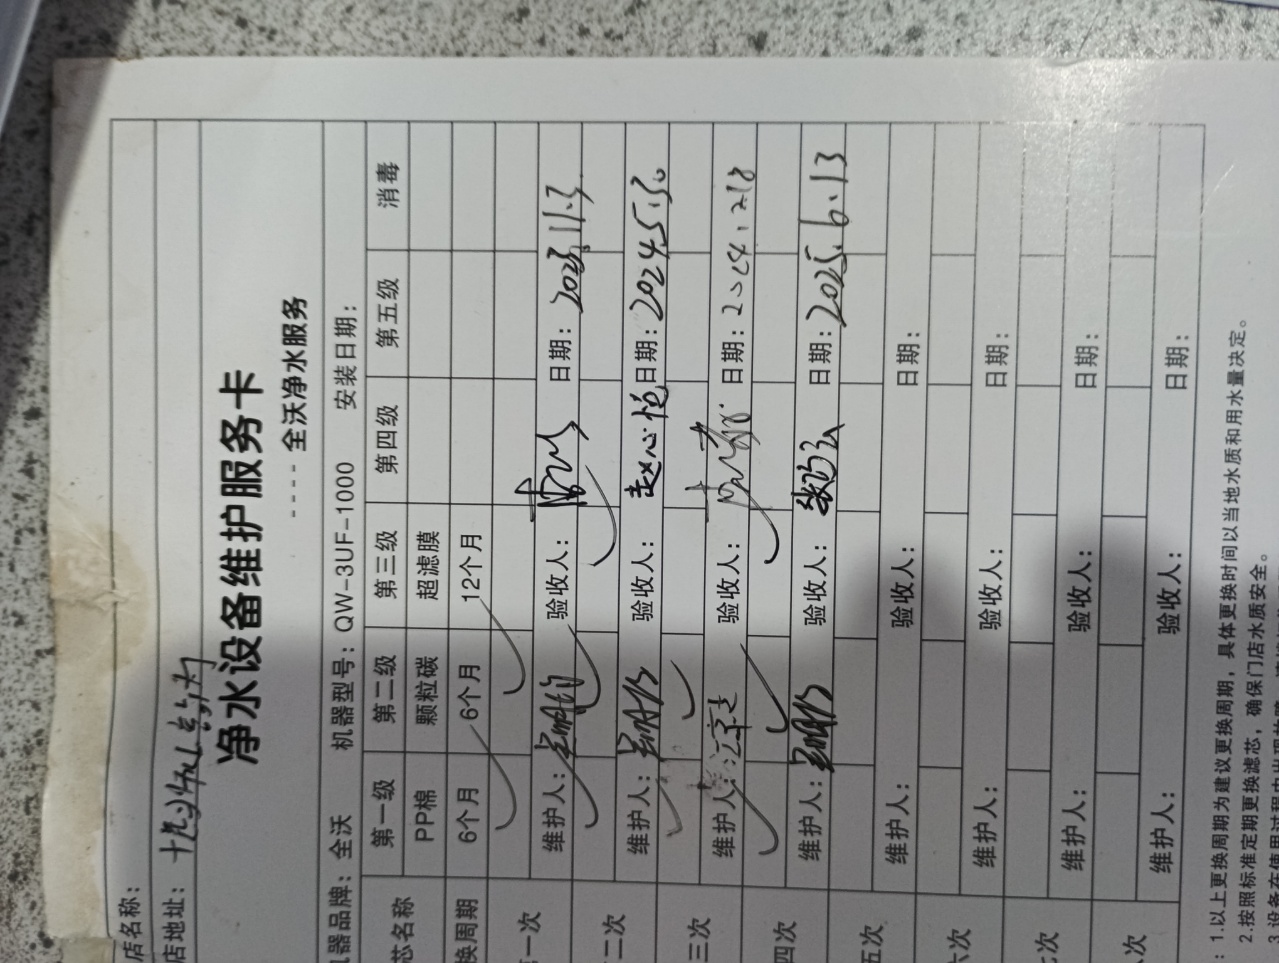 店名称：
店地址：
净水设备维护服务卡
----全沃净水服务
器品牌：全沃 机器型号：QW-3UF-1000 安装日期：
芯名称 第一级 第二级 第三级 第四级 第五级 消毒
PP棉 颗粒碳 超滤膜
换周期 6个月 6个月 12个月
一次
维护人： 验收人： 日期：2023.11.3
二次
维护人： 验收人：赵心悦 日期：2024.5.30
三次
维护人： 验收人： 日期：2024.12.18
四次
维护人： 验收人： 日期：2025.6.13
五次
维护人： 验收人： 日期：
六次
维护人： 验收人： 日期：
七次
维护人： 验收人： 日期：
次
维护人： 验收人： 日期：
：1.以上更换周期为建议更换周期，具体更换时间以当地水质和用水量决定。
2.按照标准定期更换滤芯，确保门店水质安全。